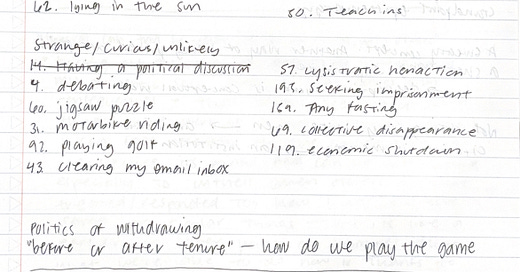 62. lying in the sun
50. Teach ins
strange/curious/unlikely
14. Having a political discussion
57. Lysistratic nonaction
4. debating
195. seeking imprisonment
60. jigsaw puzzle
31. motorbike riding
69. collective disappearance
92. playing golf
119. economic shutdown
43. clearing my email inbox
politics of withdrawing
"before or after tenure" — how do we play the game